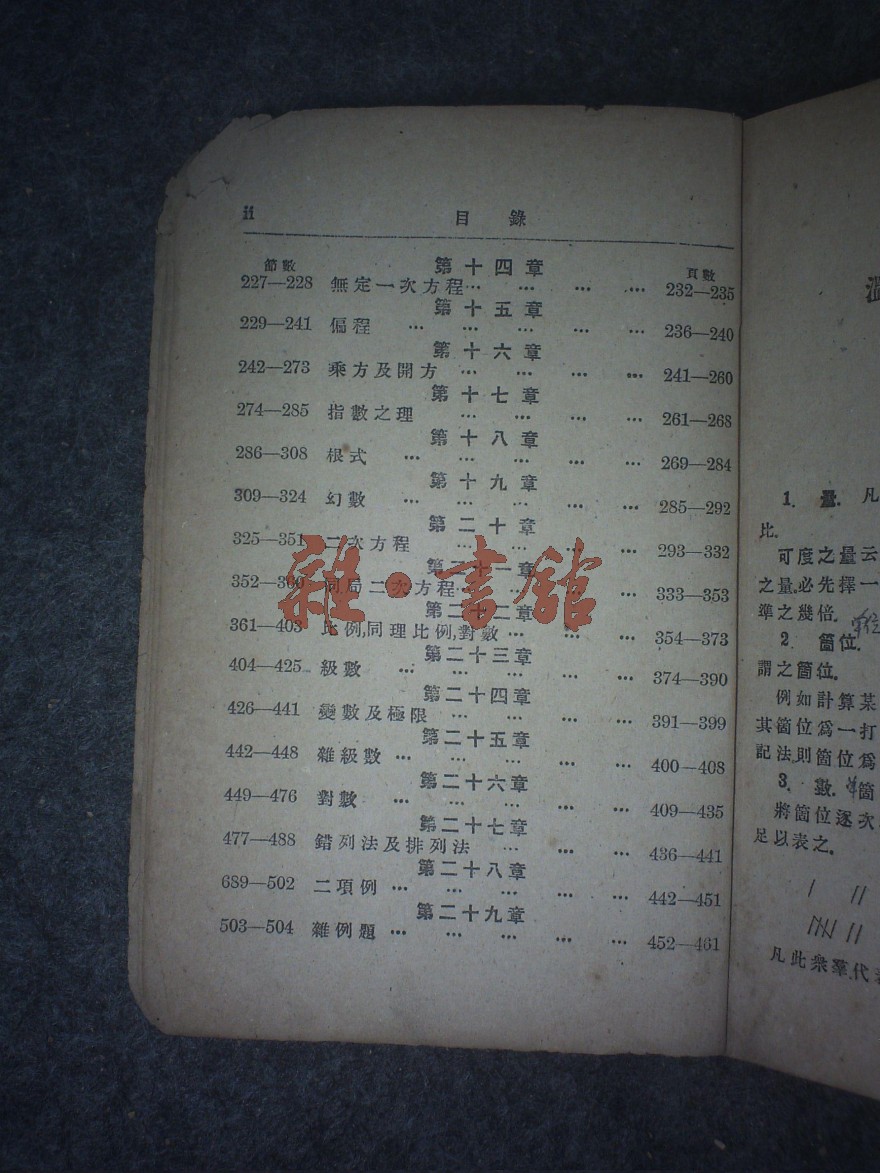 ii 目錄
節數 第十四章 頁數
227—228 無定一次方程… … … … 232—235
第十五章
229—241 偏程 … … … … … 236—240
第十六章
242—273 乘方及開方 … … … … 241—260
第十七章
274—285 指數之理 … … … … 261—268
第十八章
286—308 根式 … … … … … 269—284
第十九章
309—324 幻數 … … … … … 285—292
第二十章
325—351 二次方程 … … … … 293—332
第二十一章
352—360 同局二次方程… … … … 333—353
第二十二章
361—403 比例,同理比例,對數 … … … 354—373
第二十三章
404—425 級數 … … … … … 374—390
第二十四章
426—441 變數及極限 … … … … 391—399
第二十五章
442—448 雜級數 … … … … … 400—408
第二十六章
449—476 對數 … … … … … 409—435
第二十七章
477—488 錯列法及排列法 … … … 436—441
第二十八章
689—502 二項例 … … … … … 442—451
第二十九章
503—504 雜例題 … … … … … 452—461
雜·書館
1. 量. 凡
比.
可度之量云
之量,必先擇一
準之幾倍.
2. 箇位.
謂之箇位.
例如計算某
其箇位爲一打
記法,則箇位爲
3. 數. 箇
將箇位逐次
足以表之.
凡此衆羣,代表